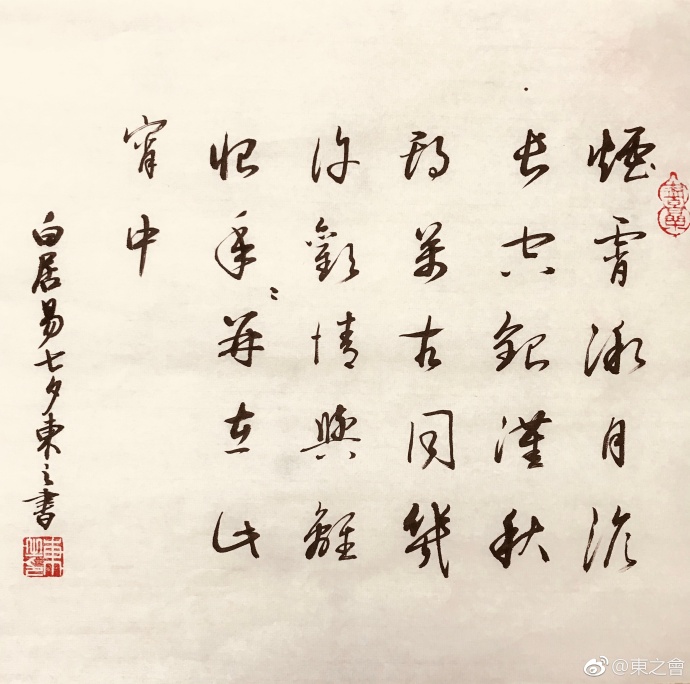 煙霄微月澹
長空銀漢秋
期萬古同幾
許歡情與離
恨年々并在此
宵中
白居易七夕東之書
@東之會